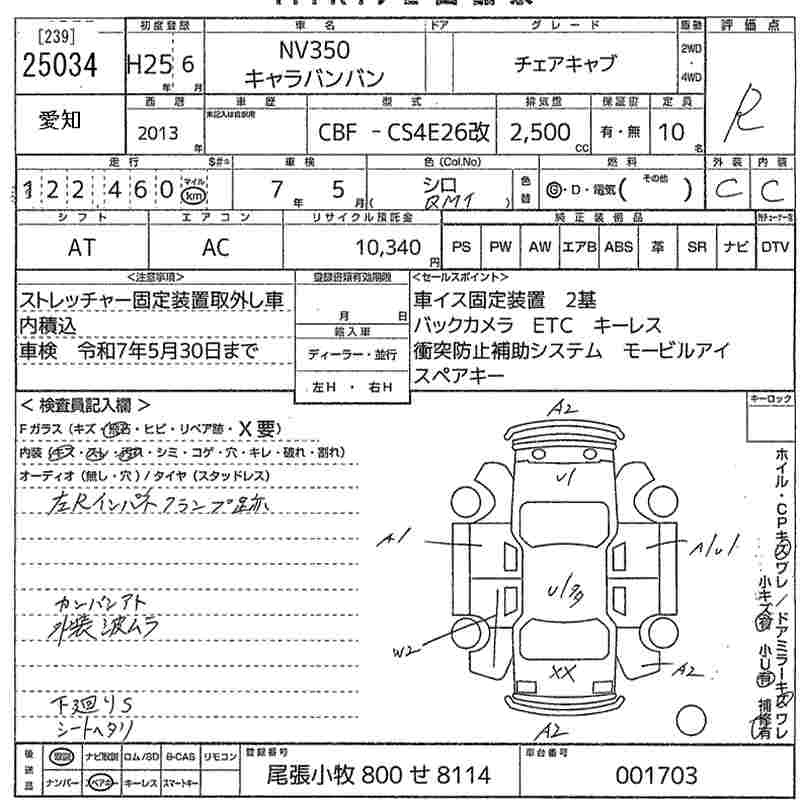 [239]
25034
初度登録
H25 6
年 月
車名
NV350
キャラバンバン
ドア
グレード
チェアキャブ
駆動
2WD
・
4WD
評価点
R
愛知
西暦
2013
年
車歴
未記入は自家用
型式
CBF －CS4E26改
排気量
2,500
CC
保証書
有・無
定員
10
名
走行
122,460
マイル
km
S#※
車検
7 年 5 月
色(Col.No)
シロ
( QM1 )
色替
燃料
Ⓖ・D・電気( その他 )
外装
C
内装
C
シフト
AT
エアコン
AC
リサイクル預託金
10,340
円
純正装備品
PS PW AW エアB ABS 革 SR ナビ DTV
<注意事項>
ストレッチャー固定装置取外し車
内積込
車検 令和7年5月30日まで
登録書類有効期限
月 日
輸入車
ディーラー・並行
左H ・ 右H
<セールスポイント>
車イス固定装置 2基
バックカメラ ETC キーレス
衝突防止補助システム モービルアイ
スペアキー
キーロック
＜ 検査員記入欄 ＞
Fガラス (キズ・飛石・ヒビ・リペア跡・X要)
内装 (キズ・スレ・汚れ・シミ・コゲ・穴・キレ・破れ・割れ)
オーディオ (無し・穴) / タイヤ (スタッドレス)
左Rインパネ クランプ跡
カンバンアト
外装波ムラ
下廻りS
シートヘタリ
A2
U1
A1
A1U1
U1多
W2
XX
A2
A2
ホイル・CPキズワレ / ドアミラーキズワレ
小キズ有 小U有 補修有
後送品
取説 ナビ取説 ロム/SD B-CAS リモコン
ナンバー スペアキー キーレス スマートキー
登録番号
尾張小牧 800 せ 8114
車台番号
001703